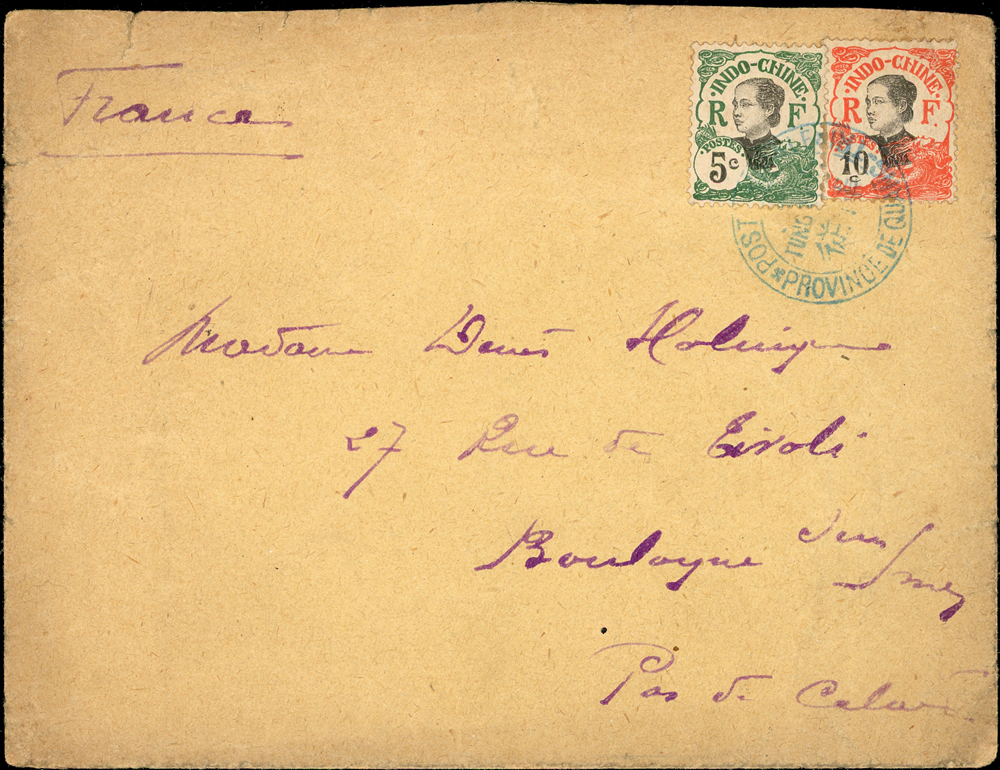 France
INDO-CHINE
R F
POSTES
5c
INDO-CHINE
R F.
POSTES
10c
POST
TUNG
*PROVINCE DE QU
Madame Denis
27 Rue de Tivoli
Boulogne Sur Mer
Pas de Calais